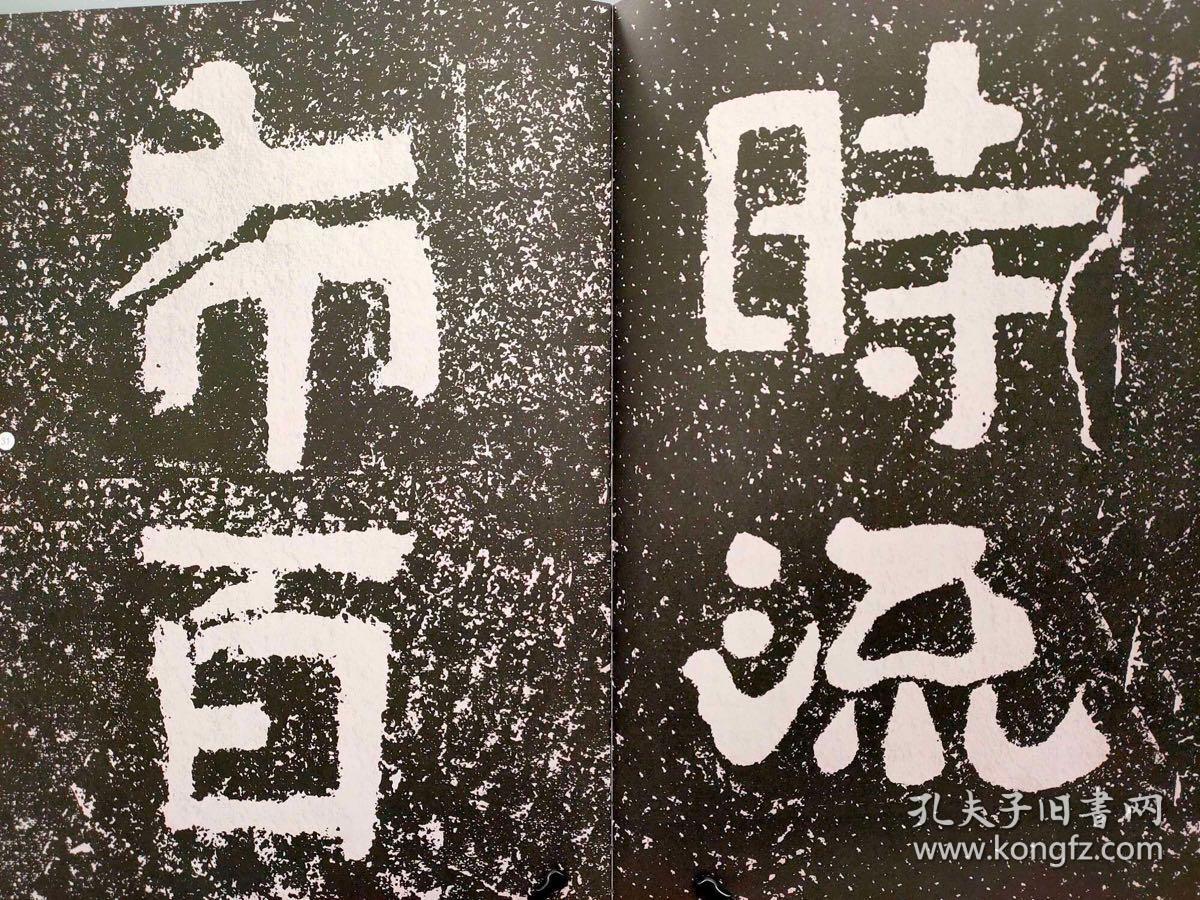 時流
布百
31
孔夫子旧書网
www.kongfz.com